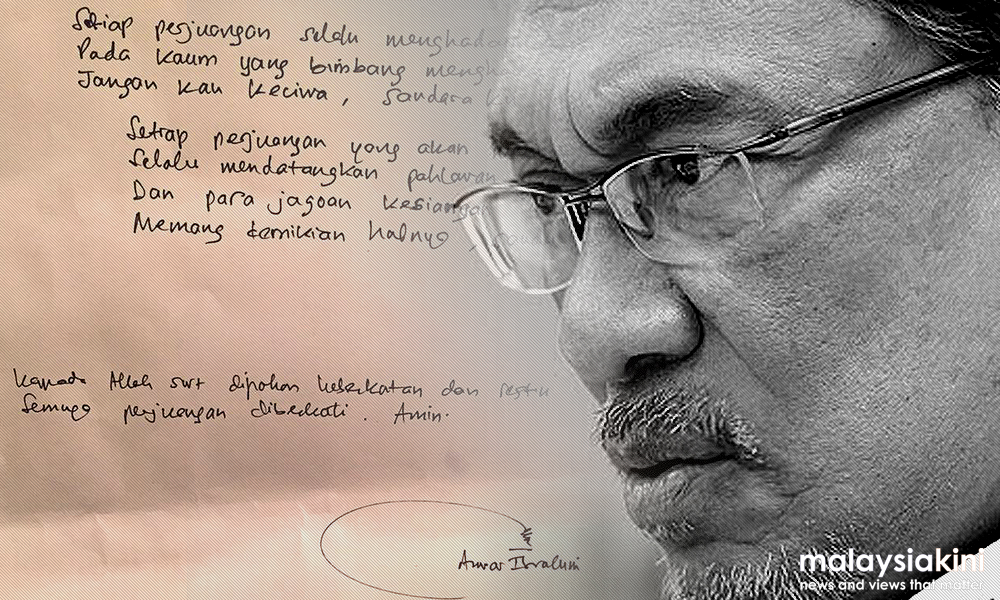 Setiap perjuangan selalu menghada
Pada kaum yang bimbang mengh
Jangan kau keciwa, Saudara k
Setiap perjuangan yang akan
Selalu mendatangkan pahlawan
Dan para jagoan kesianga
Memang demikian halnya,
Kepada Allah swt dipohon keberkatan dan restu
Semuga perjuangan diberkati. Amin.
Anwar Ibrahim
malaysiakini
news and views that matter